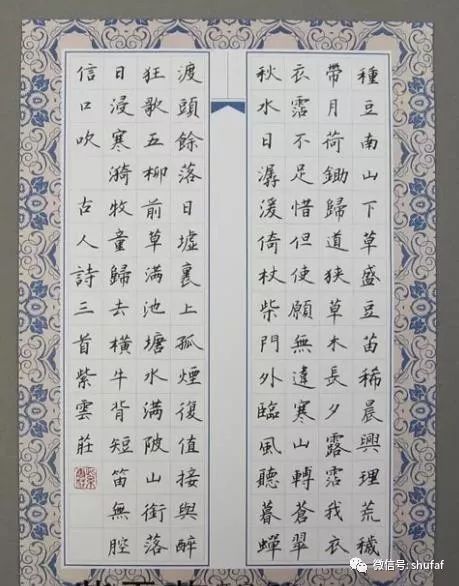 種豆南山下草盛豆苗稀晨興理荒穢
帶月荷鋤歸道狹草木長夕露霑我衣
衣霑不足惜但使願無違寒山轉蒼翠
秋水日潺湲倚杖柴門外臨風聽暮蟬
渡頭餘落日墟裏上孤煙復值接與醉
狂歌五柳前草滿池塘水滿陂山銜落
日浸寒漪牧童歸去橫牛背短笛無腔
信口吹 古人詩三首紫雲莊
微信号: shufaf